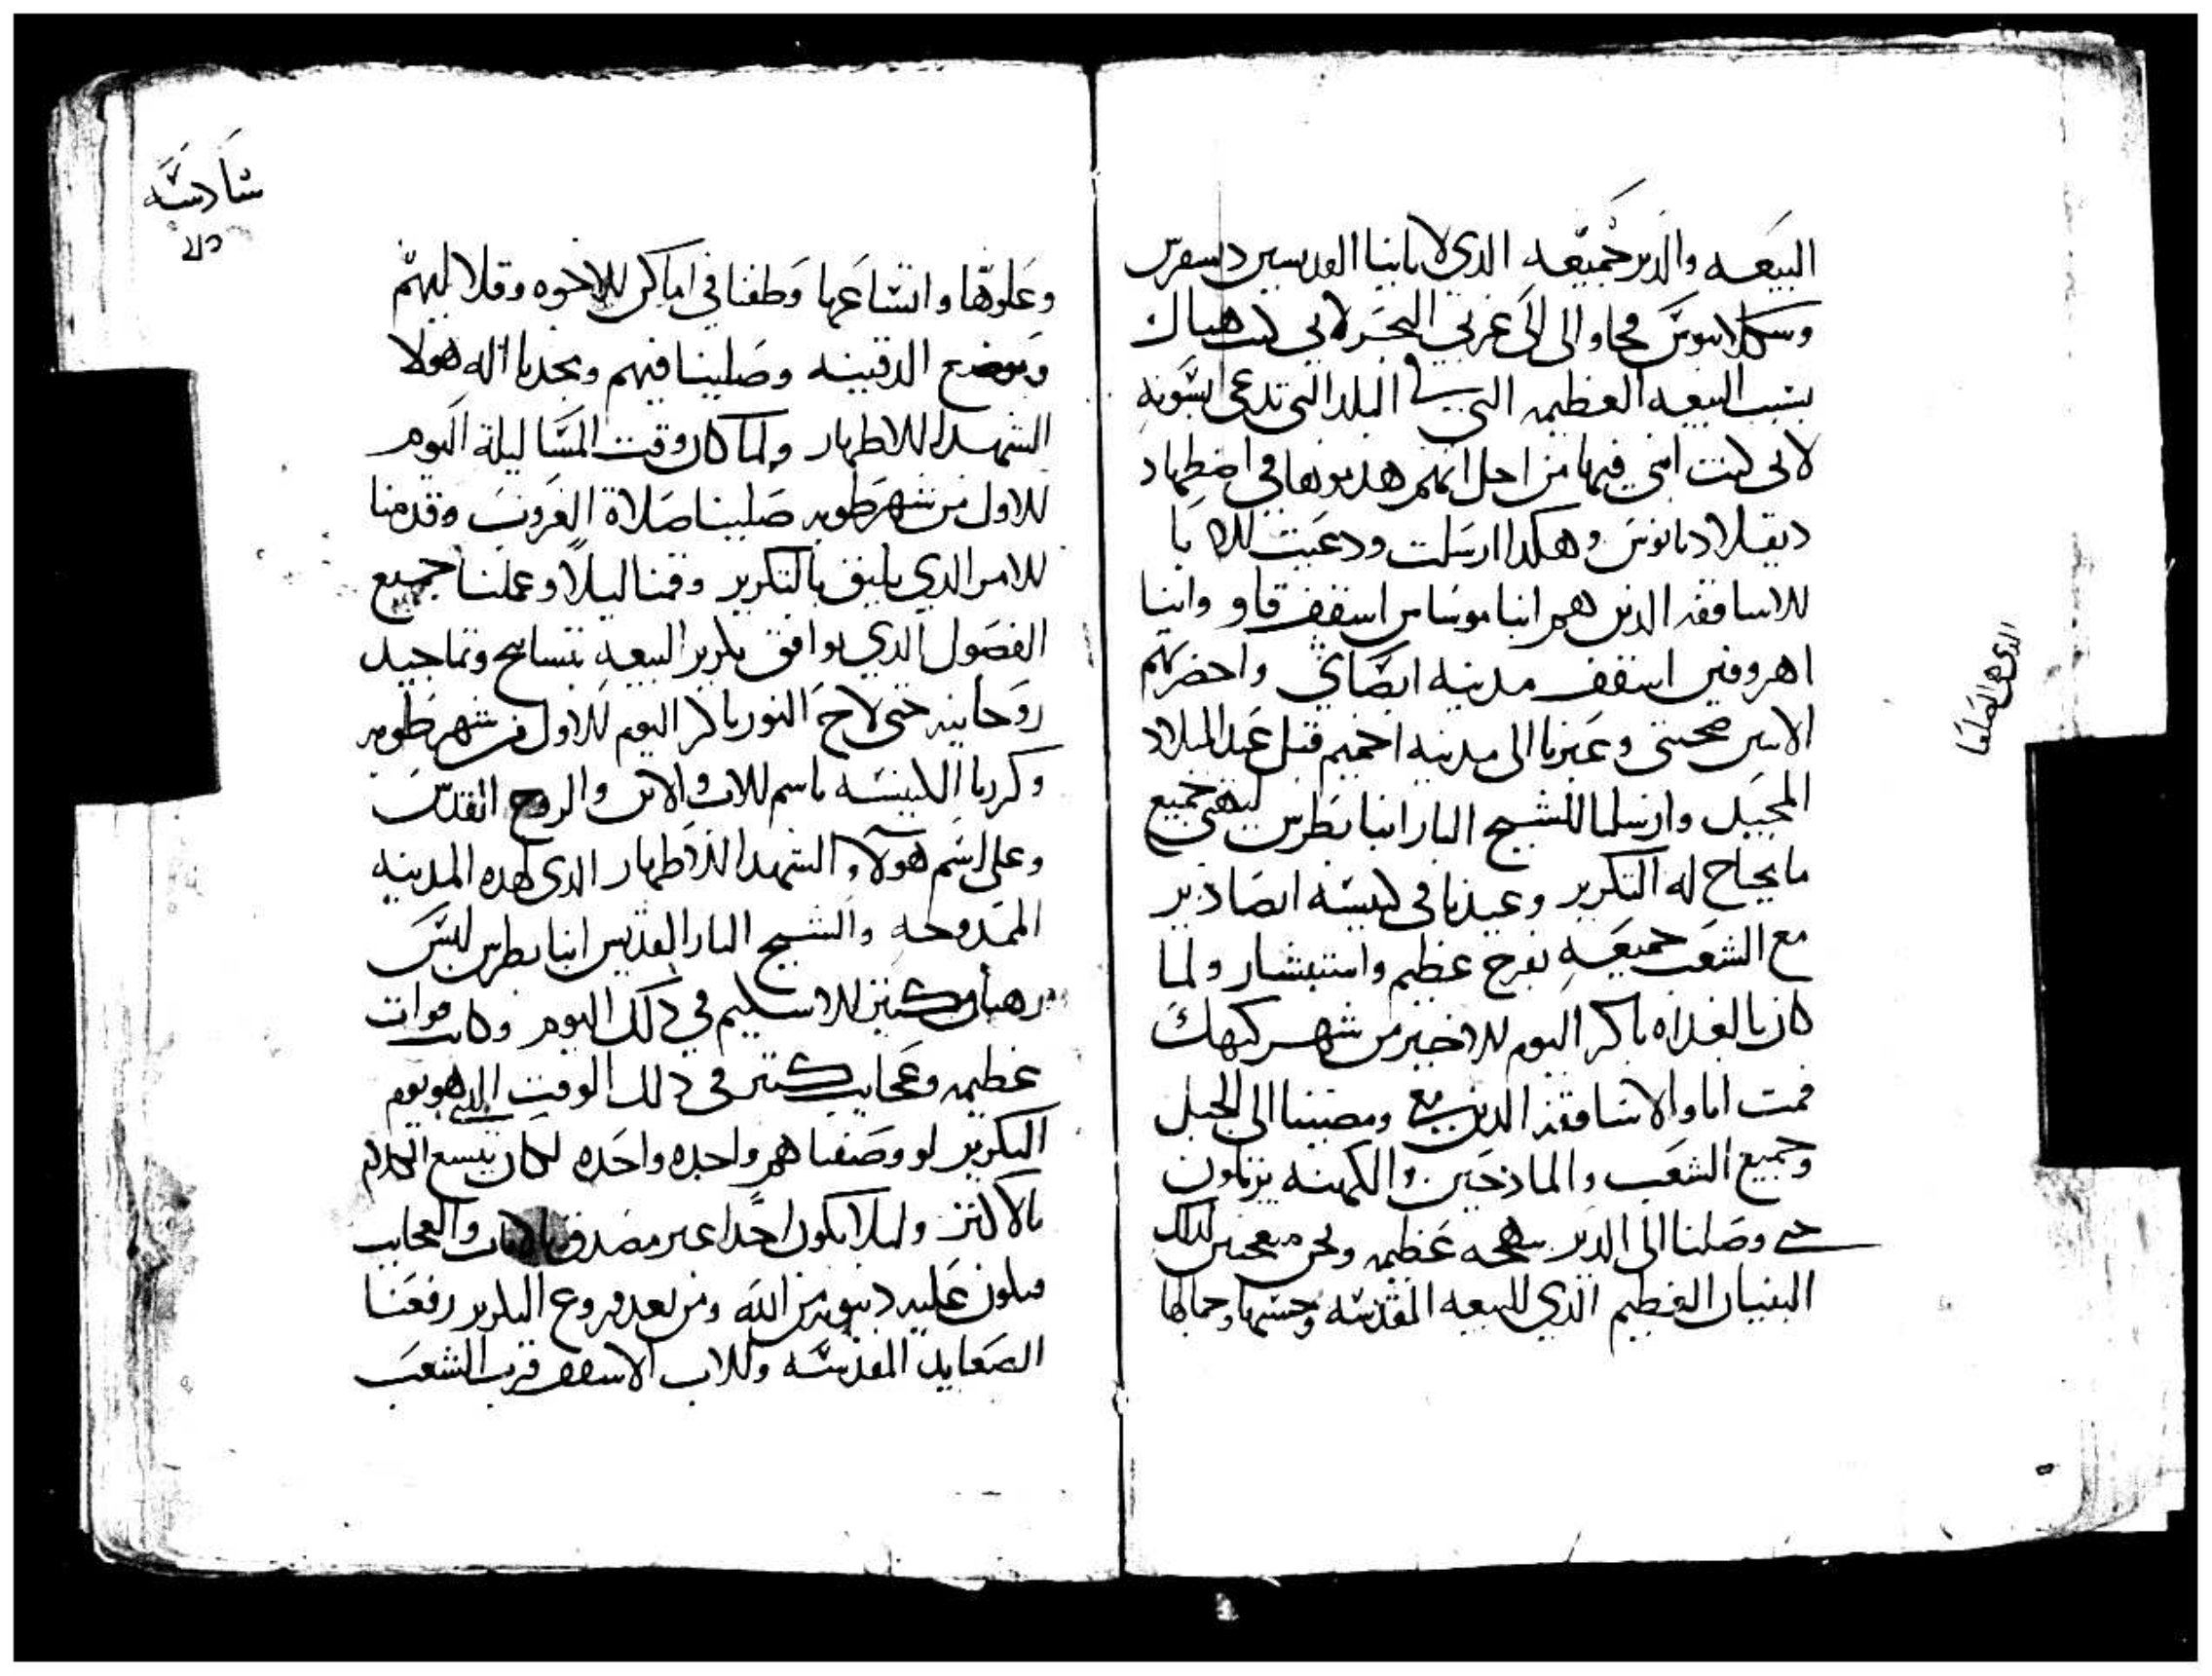 البيعه والدير جميعه الذي لابائنا القديسين دسقرس
وسكلابيوس فجاوا الى الي غربي البحر لاني كنت هناك
بسبب البيعه العظيمه التي في البلد التي تدعى ابسونه
لاني كنت ابني فيها من اجل انهم هدموها في اضطهاد
ديقلاديانوس وهكدا ارسلت ودعيت الابا
الاساقفه الدين هم انبا موساس اسقف قاو وانبا
اهرومس اسقف مدينه ابصاي واحضرتهم
الاتنين صحبتي وعبرنا الى مدينه اخميم قبل عيد الميلاد
المجيد وارسلنا للشيخ البار انبا بطرس ليهي جميع
ما يحتاج له التكريز وعيدنا في كنيسه ابصادير
مع الشعب جميعه بفرح عظيم واستبشار ولما
كان بالغداه باكر اليوم الاخير من شهر كيهك
قمت انا والاساقفه الدين معي ومضينا الى الجبل
وجميع الشعب والماذحين والكهنه يرتلون
حتي وصلنا الى الدير ببهجه عظيمه ونحن متعجبين لدلك
البنيان العظيم الذي للبيعه المقدسه وحسنها وجمالها
الذي هو الصلبا
سادسه
وعلوها واتساعها وطفنا في اماكن الاخوه وقلاليهم
وموضع الدقينه وصلينا فيهم ومجدنا اله هولا
الشهدا الاطهار ولما كان وقت المسا ليلة اليوم
الاول من شهر طوبه صلينا صلاة الغروب وقدمنا
الامر الذي يليق بالتكريز وقمنا ليلا وعملنا جميع
الفصول الذي توافق تكريز البيعه بتسابيح وتماجيد
روحانيه حتى لاح النور باكر اليوم الاول من شهر طوبه
وكرزنا الكنيسه باسم الاب والابن والروح القدس
وعلى اسم هولاء الشهدا الاطهار الذى لهده المدينه
الممدوحه والشيخ البار القديس انبا بطرس لبس
رهبان كتير الاسكيم في ذلك اليوم وكانت قوات
عظيمه وعجايب كتير في دلك الوقت الذي هو يوم
التكريز لو وصفناهم واحده واحده لكان يتسع الكلام
بالاكتر وليلا يكون احدا غير مصدق بالايات والعجايب
فيكون عليه دينونه من الله ومن بعد فروغ التكريز رفعنا
الصعايد المقدسه والاب الاسقف قرب الشعب